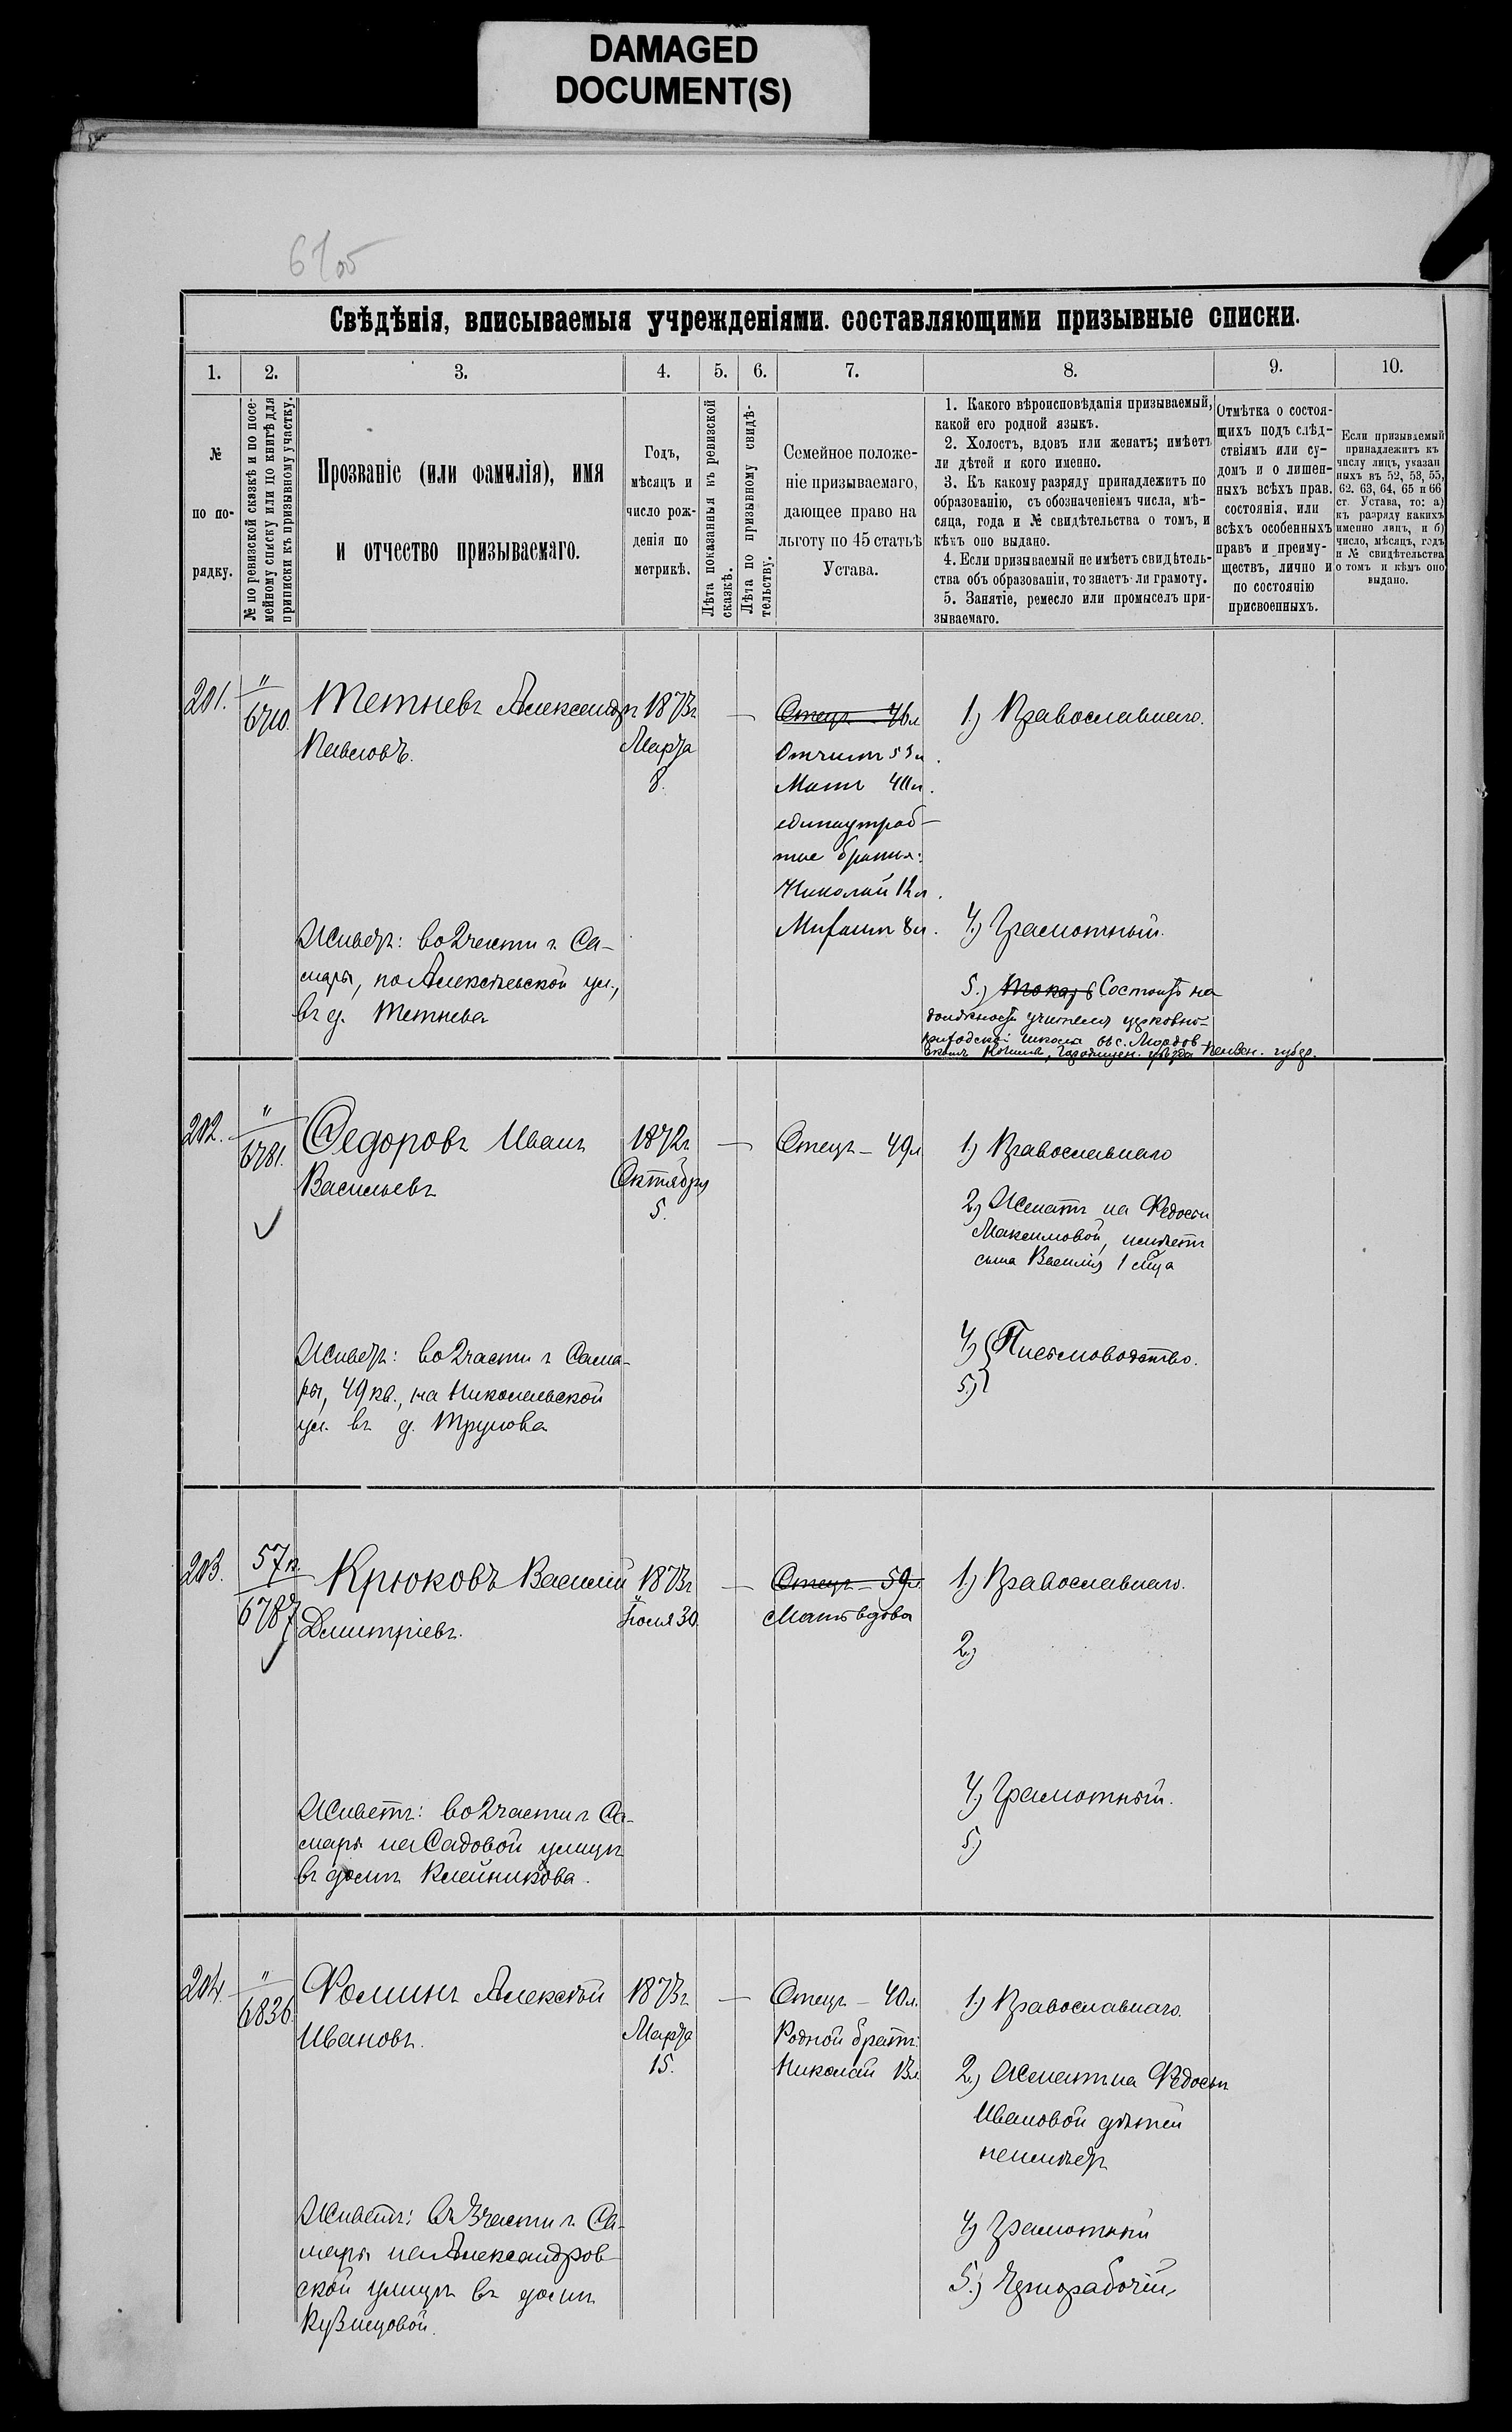 DAMAGED
DOCUMENT(S)
Свѣдѣнія, вписываемыя учрежденіями. составляющими призывные списки.
1. 2. 3. 4. 5. 6. 7. 8. 9. 10.
№
по по-
рядку.
№ по ревизской сказкѣ и по посе-
мейному списку или по книгѣ для
приписки къ призывному участку.
Прозваніе (или фамилія), имя
и отчество призываемаго.
Годъ,
мѣсяцъ и
число рож-
денія по
метрикѣ.
Лѣта показанныя къ ревизской
сказкѣ.
Лѣта по призывному свидѣ-
тельству.
Семейное положе-
ніе призываемаго,
дающее право на
льготу по 45 статьѣ
Устава.
1. Какого вѣроисповѣданія призываемый,
какой его родной языкъ.
2. Холостъ, вдовъ или женатъ; имѣетъ
ли дѣтей и кого именно.
3. Къ какому разряду принадлежитъ по
образованію, съ обозначеніемъ числа, мѣ-
сяца, года и № свидѣтельства о томъ, и
кѣмъ оно выдано.
4. Если призываемый не имѣетъ свидѣтель-
ства объ образованіи, то знаетъ ли грамоту.
5. Занятіе, ремесло или промыселъ при-
зываемаго.
Отмѣтка о состоя-
щихъ подъ слѣд-
ствіямъ или су-
домъ и о лишен-
ныхъ всѣхъ прав.
состоянія, или
всѣхъ особенныхъ
правъ и преиму-
ществъ, лично и
по состоянію
присвоенныхъ.
Если призываемый
принадлежитъ къ
числу лицъ, указан
ныхъ въ 52, 53, 55,
62. 63, 64, 65 и 66
ст. Устава, то: а)
къ разряду какихъ
именно лицъ, и б)
число, мѣсяцъ, годъ
и № свидѣтельства
о томъ и кѣмъ оно
выдано.
201. " 6710.
Тетневъ Александръ
Павловъ.
1873г
Марта
8.
—
Отецъ - 46л
Отчим 53л.
Мать 40л.
единоутроб-
ные братья:
Николай 12л.
Михаил 8л.
1.) Православнаго.
4.) Грамотный.
5.) Токарь Состоитъ на
должности учителя церковно-
приходской школы въ с. Мордов-
Городищен. уѣзда Пензен. губер.
Живетъ: во 2 части г. Са-
мары, по Алексѣевской ул.,
въ д. Тетнева
202. " 6781.
Федоровъ Иванъ
Васильевъ
1872г
Октября
5.
—
Отецъ - 49л
1.) Православнаго
2.) Женатъ на Федосьи
Максимовой, имѣетъ
сына Василія 1 мца
4.)
5.) Письмоводство.
Живетъ: во 2 части г Сама-
ры, 49 кв., на Николаевской
ул. въ д. Трупова
203. 57п. 6787
Крюковъ Василій
Дмитріевъ.
1873г
Іюля 30.
—
Отецъ - 59л
Мать вдова
1.) Православнаго.
2.)
4.) Грамотный.
5.)
Живетъ: во 2 части г Са-
мары на Садовой улицѣ
въ домѣ Клейникова.
204. " 6836.
Фоминъ Алексѣй
Ивановъ.
1873г
Марта
15.
—
Отецъ - 40л.
Родной братъ:
Николай 13л
1.) Православнаго.
2.) Женатъ на Федосьи
Ивановой дѣтей
неимѣетъ
4.) Грамотный
5.) Чернорабочій
Живетъ: въ 3 части г. Са-
мары на Александров-
ской улицѣ въ домѣ
Кузнецовой.